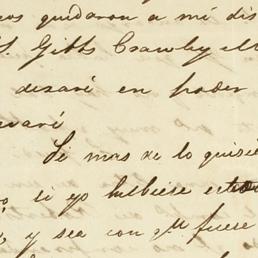 os quidaron a mi dis
S. Gibbs Crawley
dexaré en poder
varé
Si mas de lo quisie
si yo hubiese
y sea con qe fuese